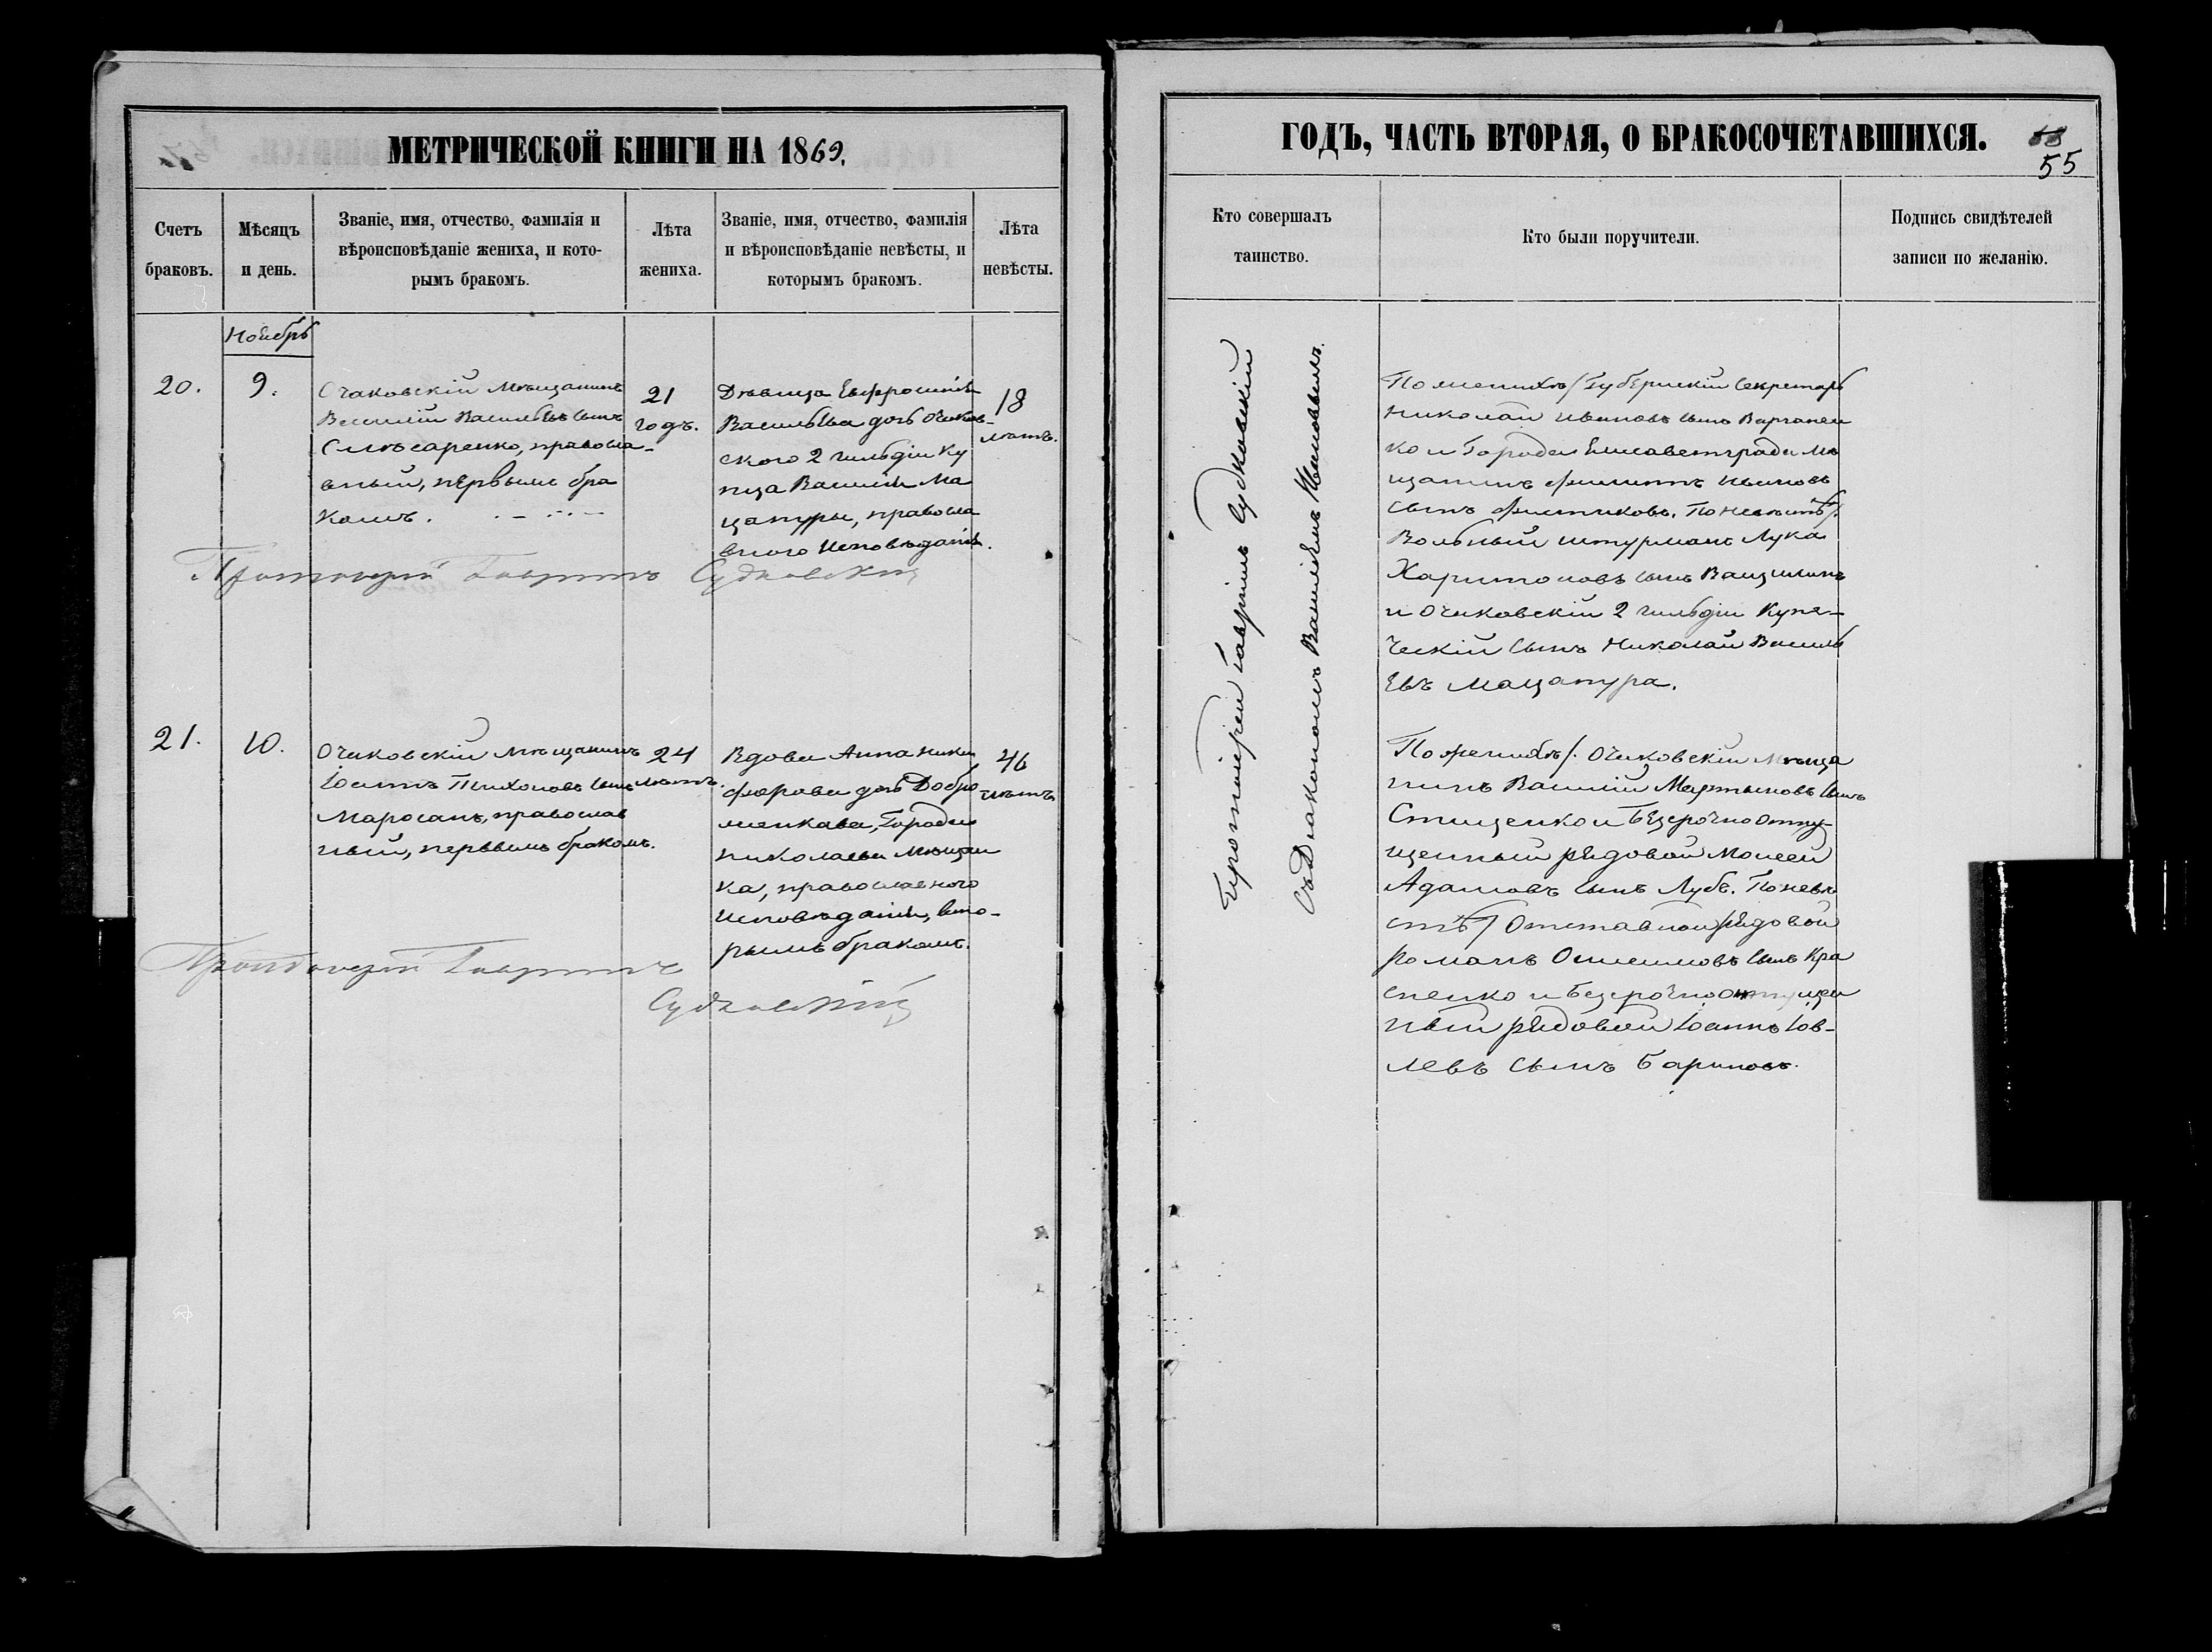 МЕТРИЧЕСКОЙ КНИГИ НА 1869.
Счетъ браковъ.
Мѣсяцъ и день.
Званіе, имя, отчество, фамилія и
вѣроисповѣданіе жениха, и кото-
рымъ бракомъ.
Лѣта
жениха.
Званіе, имя, отчество, фамилія
и вѣроисповѣданіе невѣсты, и
которымъ бракомъ.
Лѣта
невѣсты.
Ноябрь
20.
9.
Очаковскій Мѣщанинъ
Василій Васильевъ сынъ
Слюсаренко, правосла-
вный, первымъ бра
комъ.
21
годъ.
Дѣвица Евфросинія
Васильева дочь Очаков-
ского 2 гильдіи Ку
пца Василія Ма
цапуры, правосла
вного исповѣданія.
18
лѣтъ.
Протоіерей Гавріилъ Судковскій
21.
10.
Очаковскій Мѣщанинъ
Іоаннъ Тихоновъ сынъ
Маросанъ, православ
ный, первымъ бракомъ.
24
лѣтъ.
Вдова Анна Ники
форова дочь Добро
женкова, Города
Николаева Мѣщан
ка, православного
исповѣданія, вто-
рымъ бракомъ.
46
лѣтъ
Протоіерей Гавріилъ
Судковскій
ГОДЪ, ЧАСТЬ ВТОРАЯ, О БРАКОСОЧЕТАВШИХСЯ.
58
55
Кто совершалъ
таинство.
Кто были поручители.
Подпись свидѣтелей
записи по желанію.
Протоіерей Гавріилъ Судковскій
Съ Діакономъ Василіемъ
По женихѣ/ Губернскій Секретарь
Николай Ивановъ сынъ Варганен
ко и Города Елисаветграда Мѣ
щанинъ Филиппъ Ивановъ
сынъ Фистиковъ. По невѣстѣ/.
Вольный штурманъ Лука
Харитоновъ сынъ
и Очаковскій 2 гильдіи Купе-
ческій сынъ Николай Василь
евъ Мацапура.
По женихѣ/. Очаковскій Мѣща
нинъ Василій Мартыновъ сынъ
Стищенко и Безсрочно отпу-
щенный рядовой Моисей
Адамовъ сынъ Лубъ. По невѣ
стѣ/ Отставной рядовой
Романъ сынъ Кра
сненко и безсрочно отпущен
ный рядовой Іоаннъ Іов-
левъ сынъ Бариновъ.